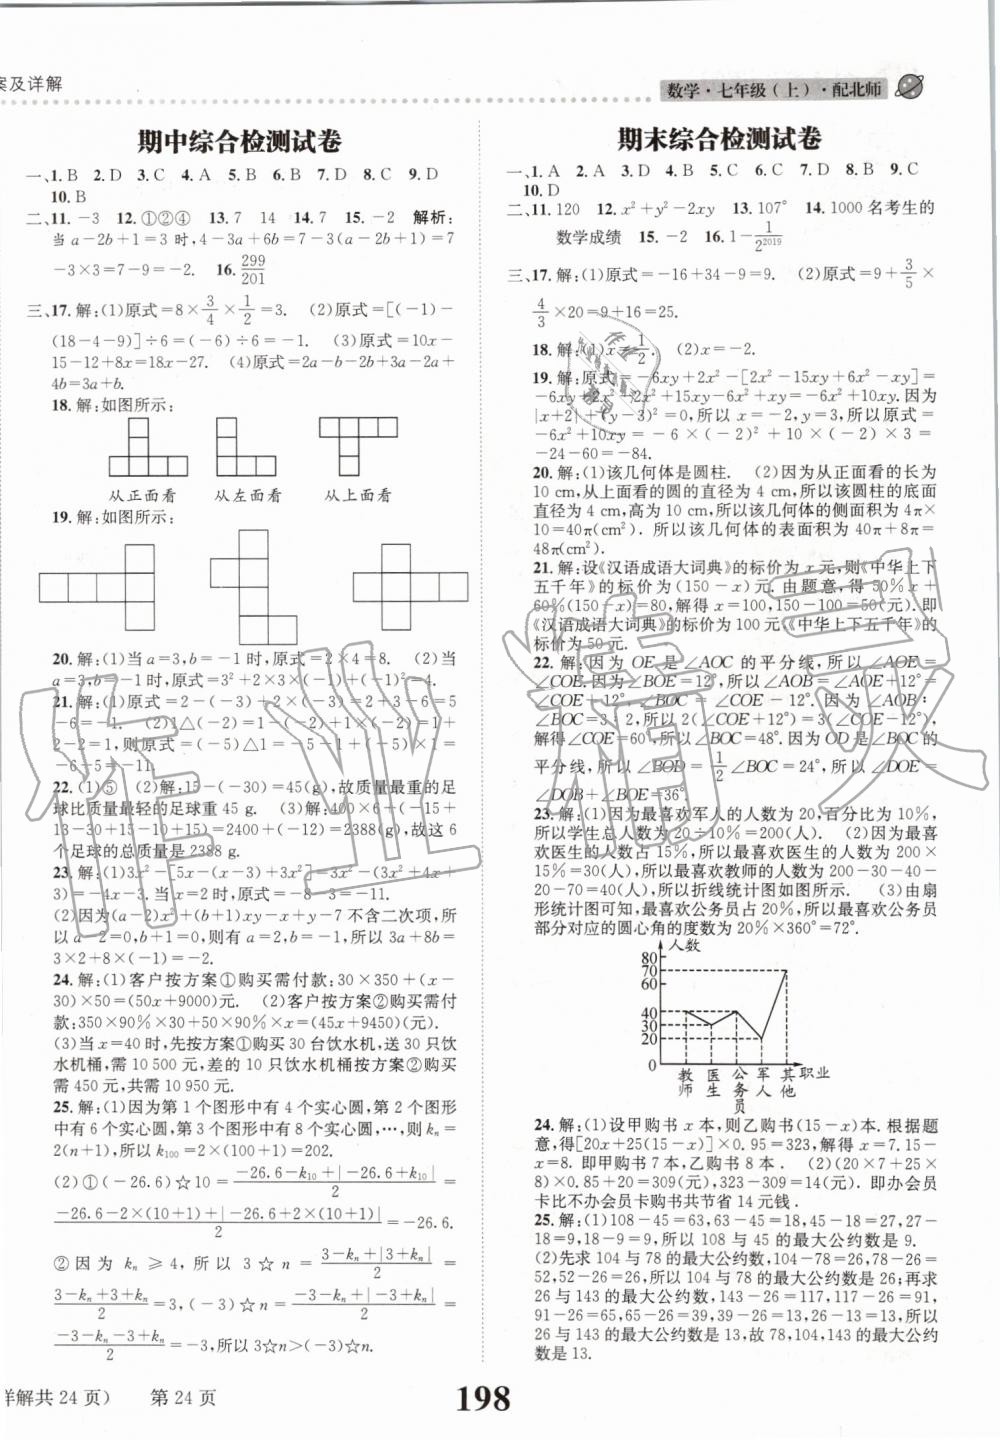 案及详解
数学·七年级(上)·配北师
期中综合检测试卷
一、1. B 2. D 3. C 4. A 5. B 6. B 7. D 8. C 9. D
10. B
二、11. -3 12. ①②④ 13. 7 14 14. 7 15. -2 解析:
当 a-2b+1=3 时, 4-3a+6b=7-3(a-2b+1)=7
-3×3=7-9=-2. 16. 299/201
三、17. 解:(1)原式=8×3/4×1/2=3. (2)原式=[(-1)-
(18-4-9)]÷6=(-6)÷6=-1. (3)原式=10x-
15-12+8x=18x-27. (4)原式=2a-b-2b+3a-2a+
4b=3a+b.
18. 解:如图所示:
从正面看 从左面看 从上面看
19. 解:如图所示:
20. 解:(1)当 a=3,b=-1 时,原式=2×4=8. (2)当
a=3,b=-1 时,原式=3²+2×3×(-1)+(-1)²=4.
21. 解:(1)原式=2-(-3)+2×(-3)=2+3-6=5
-6=-1. (2)1△(-2)=1-(-2)+1×(-2)=1+
2-2=1,则原式=(-5)△1=-5-1+(-5)×1=
-6-5=-11.
22. (1)⑤ (2)解:15-(-30)=45(g),故质量最重的足
球比质量最轻的足球重 45 g. (3)解:400×6+(-15+
13-30+15-10+15)=2400+(-12)=2388(g),故这 6
个足球的总质量是 2388 g.
23. 解:(1)3x²-[5x-(x-3)+3x²]=3x²-(3x²+4x+
3)=-4x-3. 当 x=2 时,原式=-8-3=-11.
(2)因为(a-2)x²+(b+1)xy-x+y-7 不含二次项,所
以 a-2=0,b+1=0,则有 a=2,b=-1,所以 3a+8b=
3×2+8×(-1)=-2.
24. 解:(1)客户按方案①购买需付款:30×350+(x-
30)×50=(50x+9000)元. (2)客户按方案②购买需付
款:350×90%×30+50×90%×x=(45x+9450)(元).
(3)当 x=40 时,先按方案①购买 30 台饮水机,送 30 只饮
水机桶,需 10 500 元,差的 10 只饮水机桶按方案②购买
需 450 元,共需 10 950 元.
25. 解:(1)因为第 1 个图形中有 4 个实心圆,第 2 个图形
中有 6 个实心圆,第 3 个图形中有 8 个实心圆,…,则 kₙ=
2(n+1),所以 k₁₀₀=2×(100+1)=202.
(2)①(-26.6)☆10=(-26.6-k₁₀+|-26.6-k₁₀|)/2=
(-26.6-2×(10+1)+|-26.6+2×(10+1)|)/2=-26.6.
②因为 kₙ≥4,所以 3☆n=(3-kₙ+|3-kₙ|)/2=
(3-kₙ+3+kₙ)/2=3,(-3)☆n=(-3-kₙ+|-3+kₙ|)/2=
(-3-kₙ-3+kₙ)/2=-3,所以 3☆n>(-3)☆n.
期末综合检测试卷
一、1. A 2. A 3. D 4. D 5. C 6. C 7. A 8. B 9. C
10. D
二、11. 120 12. x²+y²-2xy 13. 107° 14. 1000 名考生的
数学成绩 15. -2 16. 1-1/2²⁰¹⁹
三、17. 解:(1)原式=-16+34-9=9. (2)原式=9+3/5×
4/3×20=9+16=25.
18. 解:(1)x=1/2. (2)x=-2.
19. 解:原式=-6xy+2x²-[2x²-15xy+6x²-xy]=
-6xy+2x²-2x²+15xy-6x²+xy=-6x²+10xy.因为
|x+2|+(y-3)²=0,所以 x=-2,y=3,所以原式=
-6x²+10xy=-6×(-2)²+10×(-2)×3=
-24-60=-84.
20. 解:(1)该几何体是圆柱. (2)因为从正面看的长为
10 cm,从上面看的圆的直径为 4 cm,所以该圆柱的底面
直径为 4 cm,高为 10 cm,所以该几何体的侧面积为 4π×
10=40π(cm²). 所以该几何体的表面积为 40π+8π=
48π(cm²).
21. 解:设《汉语成语大词典》的标价为 x 元,则《中华上下
五千年》的标价为(150-x)元. 由题意,得 50%x+
60%(150-x)=80,解得 x=100,150-100=50(元).即
《汉语成语大词典》的标价为 100 元,《中华上下五千年》的
标价为 50 元.
22. 解:因为 OE 是∠AOC 的平分线,所以∠AOE=
∠COE.因为∠BOE=12°,所以∠AOB=∠AOE+12°=
∠COE+12°,∠BOC=∠COE-12°. 因为∠AOB:
∠BOC=3:2,所以 2(∠COE+12°)=3(∠COE-12°),
解得∠COE=60°,所以∠BOC=48°.因为 OD 是∠BOC 的
平分线,所以∠BOD=1/2∠BOC=24°,所以∠DOE=
∠DOB+∠BOE=36°.
23. 解:(1)因为最喜欢军人的人数为 20,百分比为 10%,
所以学生总人数为 20÷10%=200(人). (2)因为最喜
欢医生的人数占 15%,所以最喜欢医生的人数为 200×
15%=30(人),所以最喜欢教师的人数为 200-30-40-
20-70=40(人),所以折线统计图如图所示. (3)由扇
形统计图可知,最喜欢公务员占 20%,所以最喜欢公务员
部分对应的圆心角的度数为 20%×360°=72°.
人数
80
70
40
30
20
0
教师 医生 公务员 军人 其他 职业
24. 解:(1)设甲购书 x 本,则乙购书(15-x)本. 根据题
意,得[20x+25(15-x)]×0.95=323,解得 x=7.15-
x=8. 即甲购书 7 本,乙购书 8 本. (2)(20×7+25×
8)×0.85+20=309(元),323-309=14(元). 即办会员
卡比不办会员卡购书共节省 14 元钱.
25. 解:(1)108-45=63,63-45=18,45-18=27,27-
18=9,18-9=9,所以 108 与 45 的最大公约数是 9.
(2)先求 104 与 78 的最大公约数,104-78=26,78-26=
52,52-26=26,所以 104 与 78 的最大公约数是 26;再求
26 与 143 的最大公约数,143-26=117,117-26=91,
91-26=65,65-26=39,39-26=13,26-13=13,所以
26 与 143 的最大公约数是 13,故 78,104,143 的最大公约
数是 13.
详解共 24 页) 第 24 页
198
作业精灵